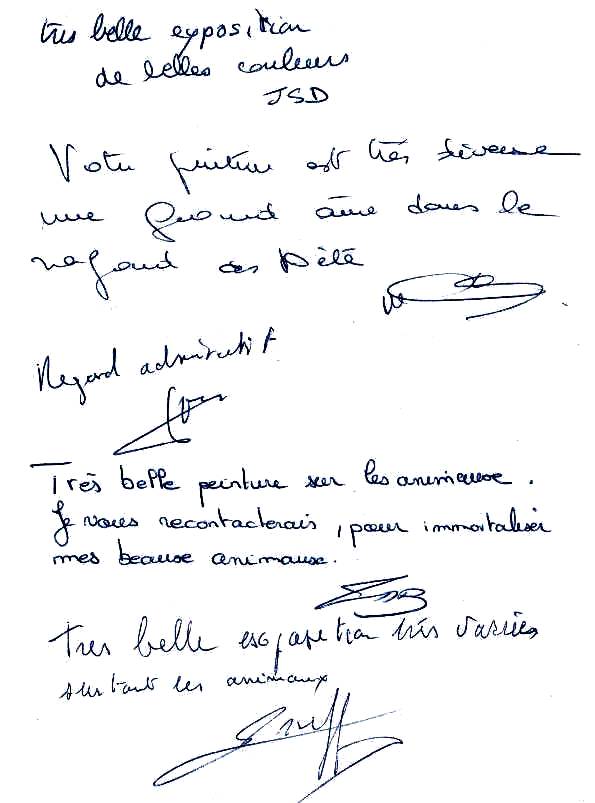 tres belle exposition
de belles couleurs
JSD
Votre peinture est très
une grand âme dans le
regard
Regard admiratif
Très belle peinture sur les animause.
Je vous recontacterais, pour immortaliser
mes beause animause.
Tres belle très variées
surtout les animaux